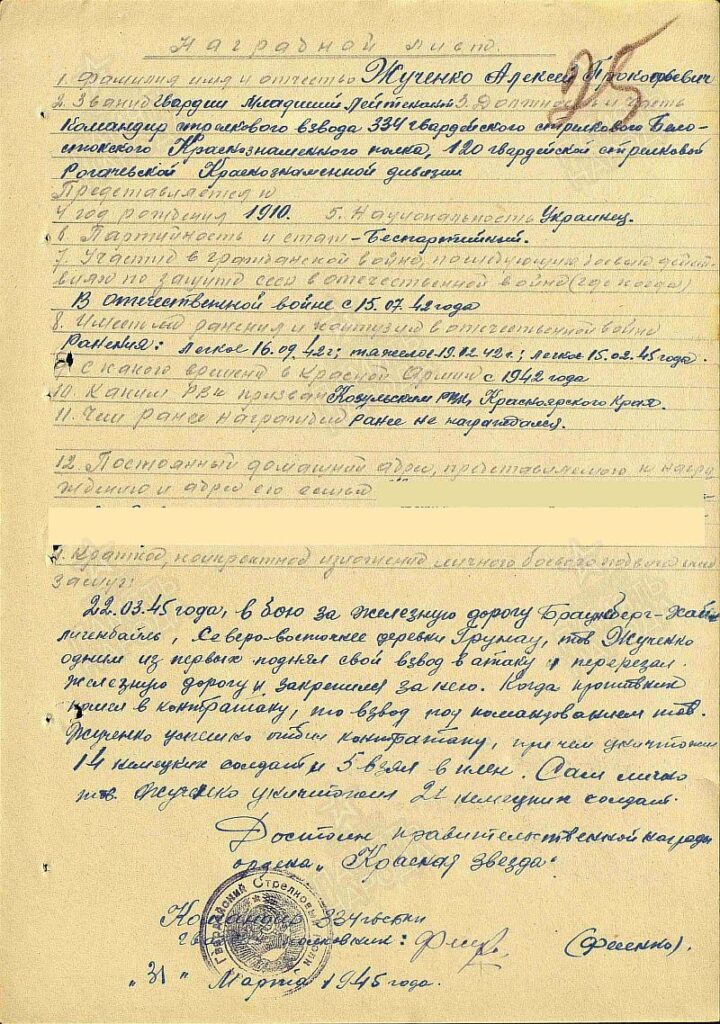 Наградной лист.
25
1. Фамилия имя и отчество Жученко Алексей Прокофьевич
2. Звание Гвардии Младший Лейтенант 3. Должность и часть
Командир стрелкового взвода 334 гвардейского стрелкового Бело-
стокского Краснознаменного полка, 120 гвардейской стрелковой
Рогачевской Краснознаменной дивизии
Представляется к
4 год рождения 1910. 5. Национальность Украинец.
6. Партийность и стаж - Беспартийный.
7. Участие в гражданской войне, последующих боевых дейст-
виях по защите ссср в отечественной войне (где когда)
В отечественной войне с 15.07.42 года
8. Имеет ли ранения и контузии в отечественной войне
Ранения: легкое 16.09.42 г; тяжелое 19.12.42 г.; легкое 15.02.45 года.
9. С какого времени в Красной Армии с 1942 года
10. Каким РВК призван Козульским РВК, Красноярского Края.
11. Чем ранее награжден Ранее не награждался.
12. Постоянный домашний адрес, представляемого к награ-
ждению и адрес его семьи
1. Краткое, конкретное изложение личного боевого подвига или
заслуг:
22.03.45 года, в бою за железную дорогу Браунберг-Хай-
лигенбайль, Северо-восточнее деревни Грунау, тов Жученко
одним из первых поднял свой взвод в атаку и перерезал
железную дорогу и закрепился за нею. Когда противник
пошел в контратаку, то взвод под командованием тов.
Жученко успешно отбил контратаку, при чем уничтожил
14 немецких солдат и 5 взял в плен. Сам лично
тов. Жученко уничтожил немецких солдат.
Достоин правительственной награды
ордена „Красная Звезда"
Командир 334 гвсткп
Гвардии Полковник: (Фесенко).
„31" Марта 1945 года.
Гвардейский Стрелковый